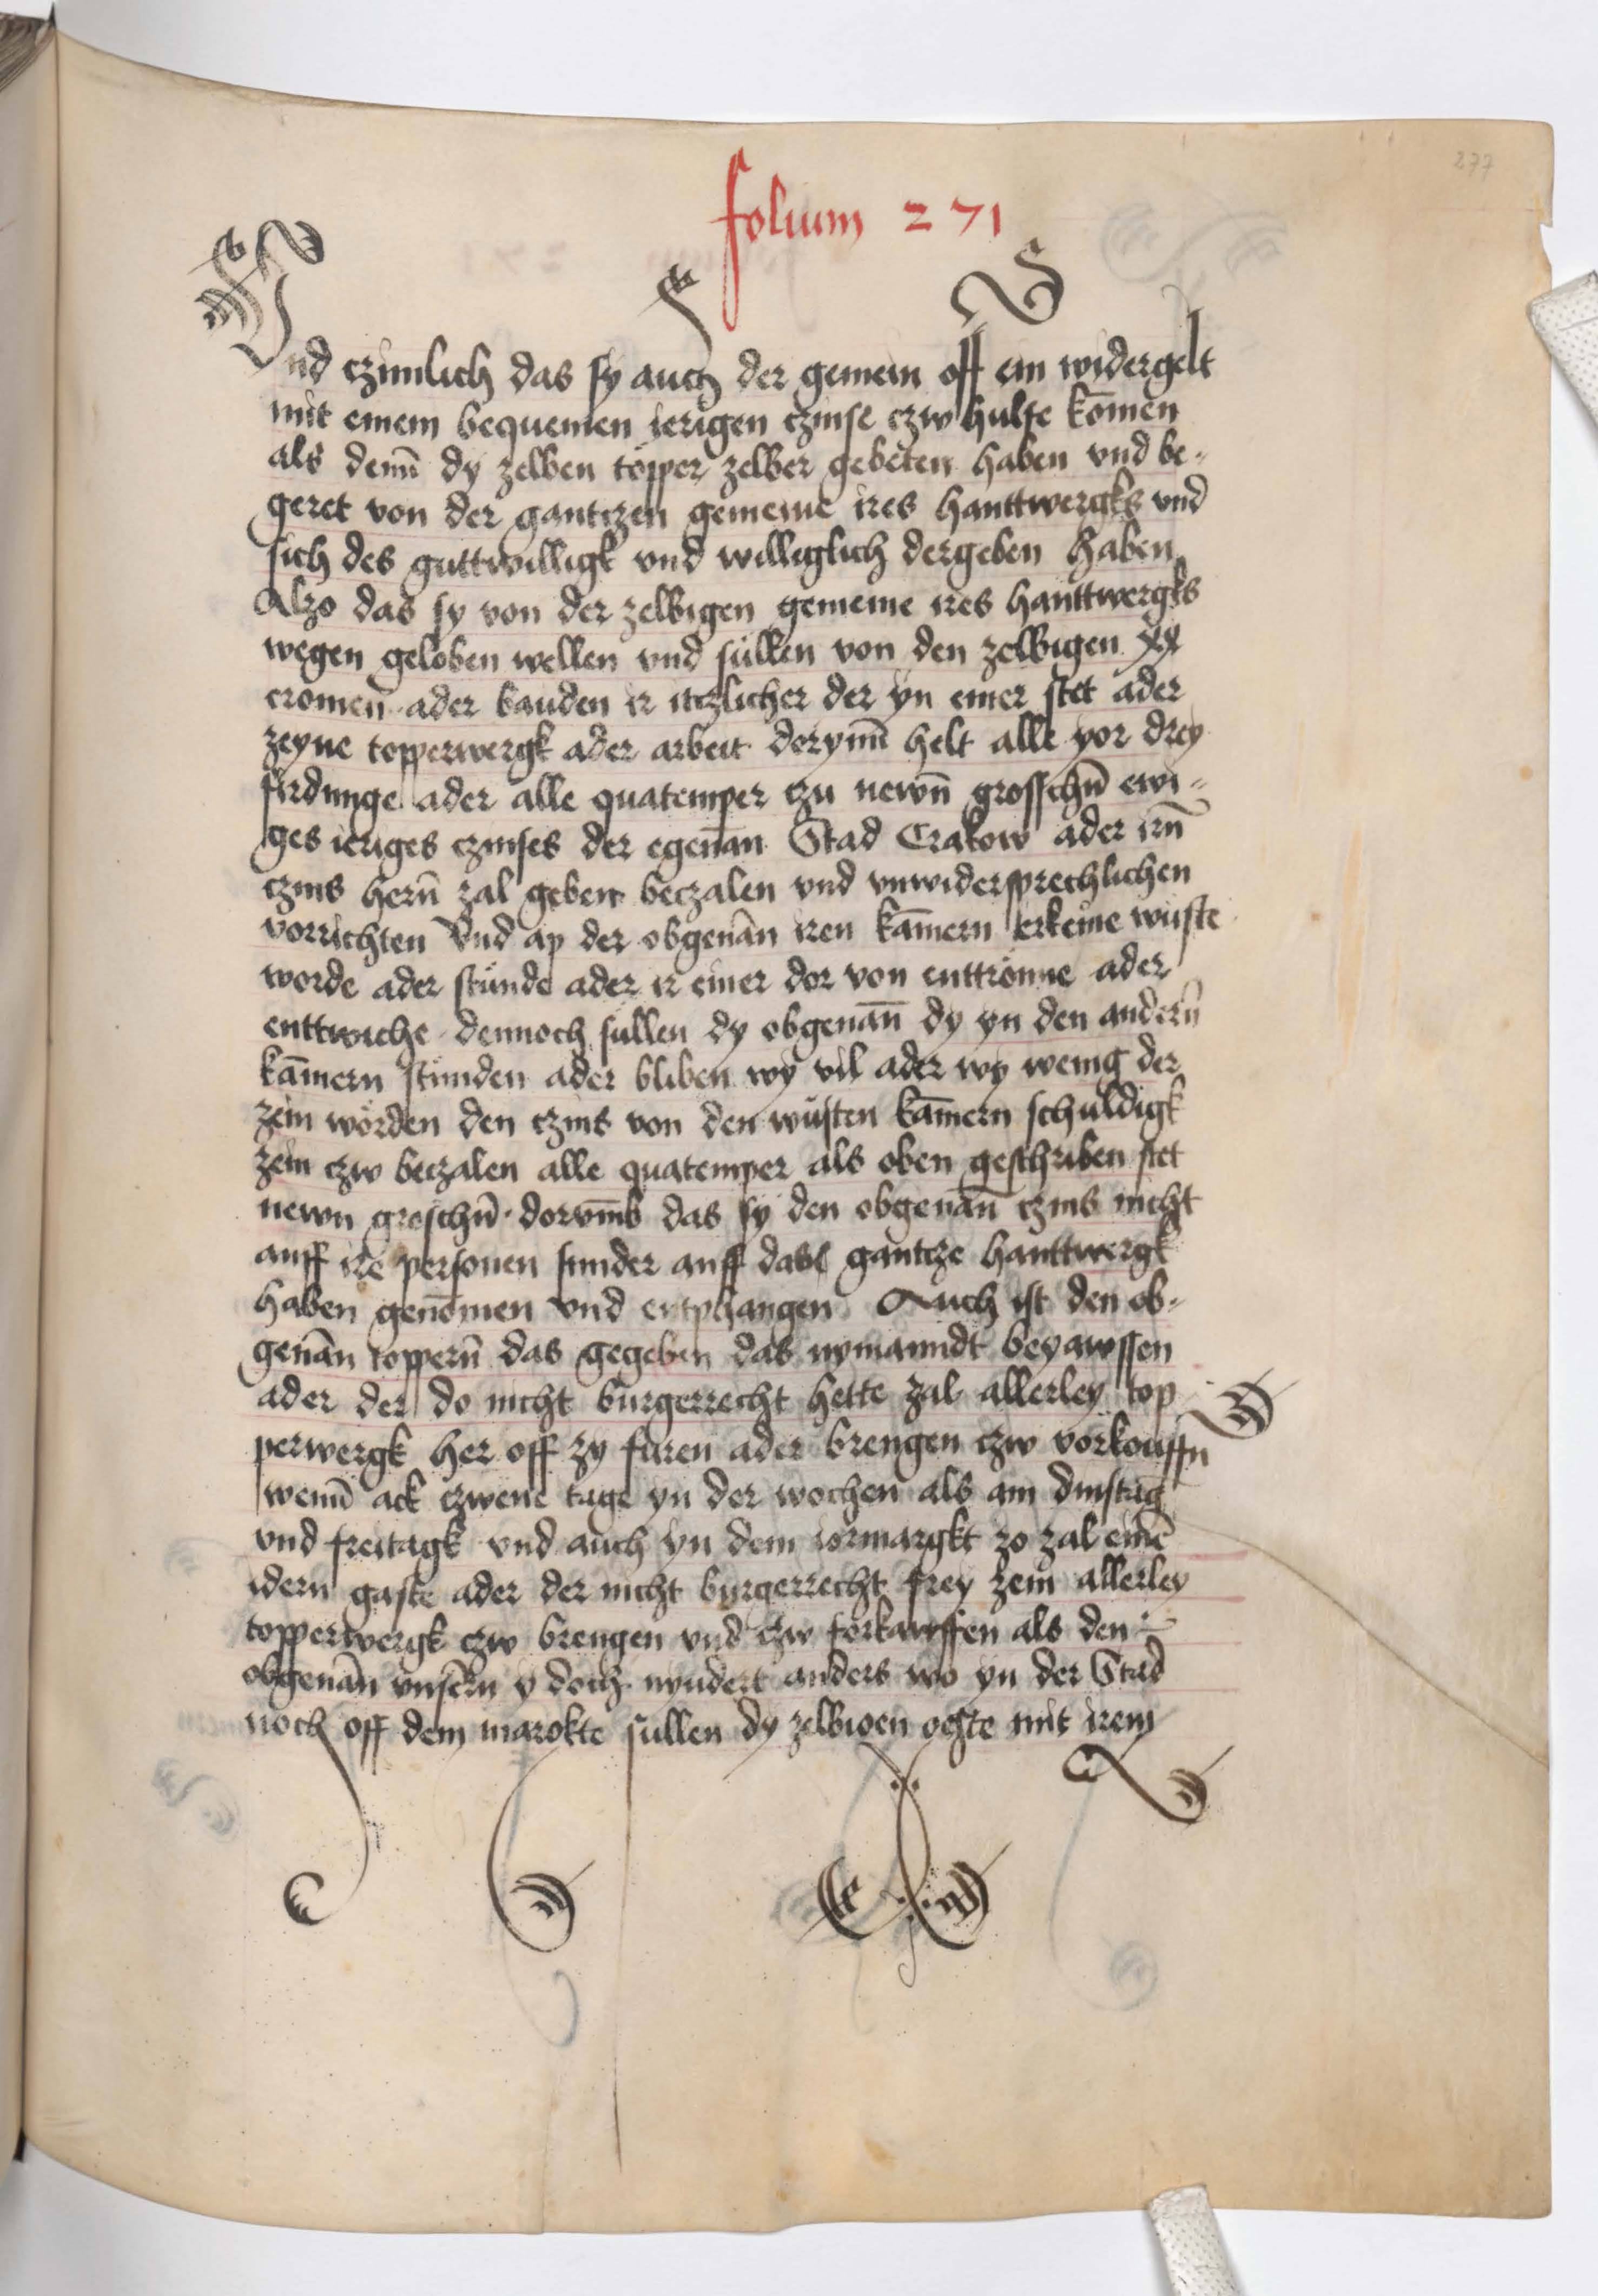 277
folium 271
Vnd czimlich das sy auch der gemein off ein widergelt
mit einem bequemen ierigen czinse czw hulfe kōmen
als denn̄ dy zelben töpper zelber gebeten haben vnd be-
geret von der gantczen gemeine ires hanttwergks vnd
sich des guttwilligk vnd williglich dergeben haben
Alzo das sy von der zelbigen gemeine ires hanttwergks
wegen geloben wellen vnd sullen von den zelbigen xx
cromen ader bauden ir itczlicher der yn einer stet ader
zeyne topperwergk ader arbeit dorynn̄ helt alle yor drey
firdunge ader alle quatemper czu newn̄ grosschn̄ ewi-
ges ieriges czinses der egenān Stad Crakow ader irn̄
czins hern̄ zal geben beczalen vnd vnwidersprechlichen
vorrichten Vnd ap der obgenān iren kām̄ern erkeine wuste
worde ader stunde ader ir einer dor von enttronne ader
enttwiche dennoch sullen dy obgenān̄ dy yn den andern̄
kām̄ern stunden ader bliben wy vil ader wy wenig der
zein wörden den czins von den wusten kām̄ern schuldigk
zein czw beczalen alle quatemper als oben geschriben stet
newn groschn̄ dorvm̄b das sy den obgenān̄ czins nicht
auff ire personen sunder auff das gantcze hanttwergk
haben genōmen vnd entphangen Auch ist den ob-
genān toppern̄ das gegeben das nymanndt beyawssen
ader der do nicht burgerrecht hette zal allerley top
perwergk her off zy furen ader brengen czw vorkouffn
wenn̄ ack czwene tage yn der wochen als am dinstag
vnd freitagk vnd auch yn dem iormargkt zo zal einē
idern gaste ader der nicht burgerrecht frey zein allerley
topperwergk czw brengen vnd czw forkawffen als den
obgenān vnsern y doch nyndert anders wo yn der Stad
noch off dem marckte sullen dy zelbigen geste mit irem